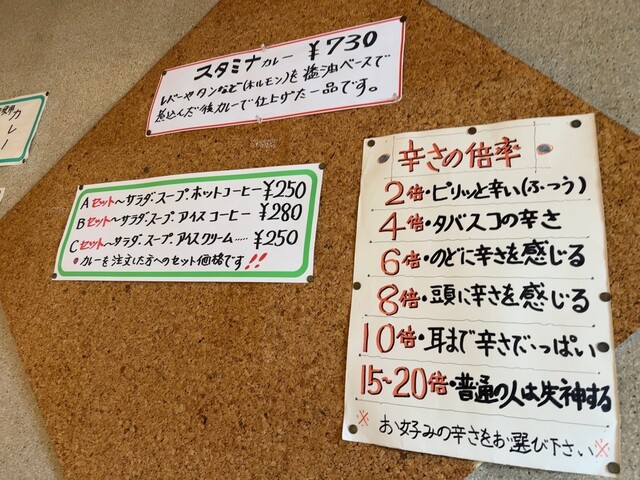 スタミナカレー ¥730
レバーやタンなど(ホルモン)を醤油ベースで
煮込んだ後カレーで仕上げた一品です。
カレー
Aセット～サラダ・スープ・ホットコーヒー ¥250
Bセット～サラダ・スープ・アイスコーヒー ¥280
Cセット～サラダ・スープ・アイスクリーム..... ¥250
◎カレーを注文した方へのセット価格です!!
辛さの倍率
2倍・ピリッと辛い(ふつう)
4倍・タバスコの辛さ
6倍・のどに辛さを感じる
8倍・頭に辛さを感じる
10倍・耳まで辛さでいっぱい
15～20倍・普通の人は失神する
※お好みの辛さをお選び下さい※